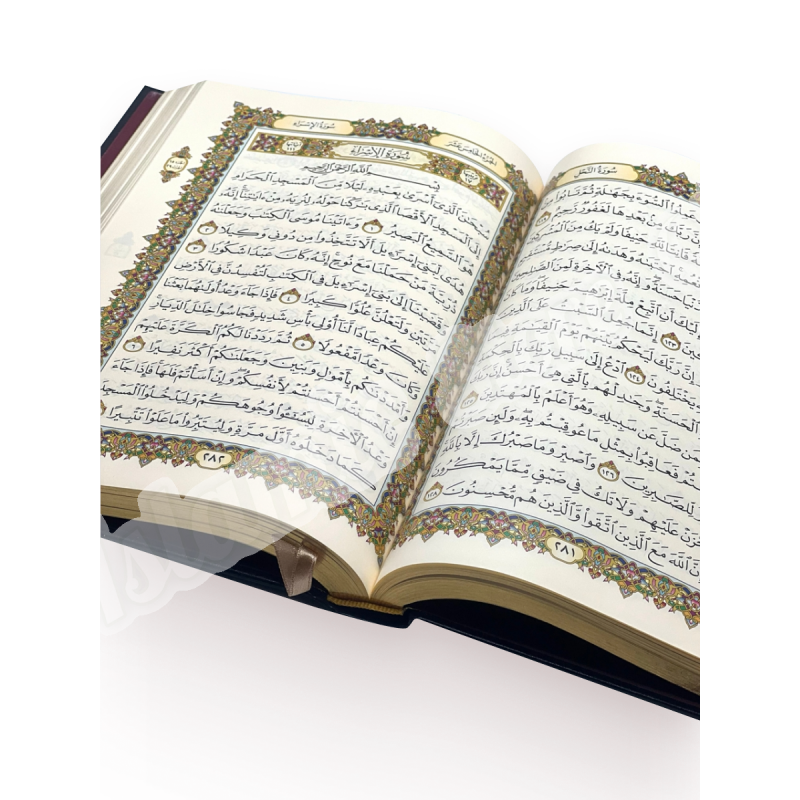 سُورَةُ النَّحْلِ
عَمِلُوا۟ ٱلسُّوٓءَ بِجَهَٰلَةٍ ثُمَّ تَابُوا۟ مِنۢ
رَبَّكَ مِنۢ بَعْدِهَا لَغَفُورٌ رَّحِيمٌ
قَانِتًا لِّلَّهِ حَنِيفًا وَلَمْ يَكُ مِنَ ٱلْمُشْرِكِينَ
ٱجْتَبَىٰهُ وَهَدَىٰهُ إِلَىٰ صِرَٰطٍ مُّسْتَقِيمٍ
حَسَنَةً وَإِنَّهُۥ فِى ٱلْءَاخِرَةِ لَمِنَ ٱلصَّٰلِحِينَ
إِلَيْكَ أَنِ ٱتَّبِعْ مِلَّةَ إِبْرَٰهِيمَ حَنِيفًا وَمَا كَانَ مِنَ
١٢٣ إِنَّمَا جُعِلَ ٱلسَّبْتُ عَلَى ٱلَّذِينَ ٱخْتَلَفُوا۟
رَبَّكَ لَيَحْكُمُ بَيْنَهُمْ يَوْمَ ٱلْقِيَٰمَةِ فِيمَا كَانُوا۟
يَخْتَلِفُونَ ١٢٤ ٱدْعُ إِلَىٰ سَبِيلِ رَبِّكَ بِٱلْحِكْمَةِ
ٱلْحَسَنَةِ وَجَٰدِلْهُم بِٱلَّتِى هِىَ أَحْسَنُ إِنَّ رَبَّكَ هُوَ
بِمَن ضَلَّ عَن سَبِيلِهِۦ وَهُوَ أَعْلَمُ بِٱلْمُهْتَدِينَ
فَعَاقِبُوا۟ بِمِثْلِ مَا عُوقِبْتُم بِهِۦ وَلَئِن صَبَرْتُمْ
لِّلصَّٰبِرِينَ ١٢٦ وَٱصْبِرْ وَمَا صَبْرُكَ إِلَّا بِٱللَّهِ
تَحْزَنْ عَلَيْهِمْ وَلَا تَكُ فِى ضَيْقٍ مِّمَّا يَمْكُرُونَ
إِنَّ ٱللَّهَ مَعَ ٱلَّذِينَ ٱتَّقَوا۟ وَّٱلَّذِينَ هُم مُّحْسِنُونَ ١٢٨
٢٨١
الجُزْءُ الخَامِسَ عَشَرَ
سُورَةُ الإِسْرَاءِ
سُورَةُ الإِسْرَاءِ
بِسْمِ ٱللَّهِ ٱلرَّحْمَٰنِ ٱلرَّحِيمِ
سُبْحَٰنَ ٱلَّذِىٓ أَسْرَىٰ بِعَبْدِهِۦ لَيْلًا مِّنَ ٱلْمَسْجِدِ ٱلْحَرَامِ
إِلَى ٱلْمَسْجِدِ ٱلْأَقْصَا ٱلَّذِى بَٰرَكْنَا حَوْلَهُۥ لِنُرِيَهُۥ مِنْ ءَايَٰتِنَآ إِنَّهُۥ
هُوَ ٱلسَّمِيعُ ٱلْبَصِيرُ ١ وَءَاتَيْنَا مُوسَى ٱلْكِتَٰبَ وَجَعَلْنَٰهُ
هُدًى لِّبَنِىٓ إِسْرَٰٓءِيلَ أَلَّا تَتَّخِذُوا۟ مِن دُونِى وَكِيلًا ٢
ذُرِّيَّةَ مَنْ حَمَلْنَا مَعَ نُوحٍ إِنَّهُۥ كَانَ عَبْدًا شَكُورًا ٣
وَقَضَيْنَآ إِلَىٰ بَنِىٓ إِسْرَٰٓءِيلَ فِى ٱلْكِتَٰبِ لَتُفْسِدُنَّ فِى ٱلْأَرْضِ
مَرَّتَيْنِ وَلَتَعْلُنَّ عُلُوًّا كَبِيرًا ٤ فَإِذَا جَآءَ وَعْدُ أُولَىٰهُمَا بَعَثْنَا
عَلَيْكُمْ عِبَادًا لَّنَآ أُو۟لِى بَأْسٍ شَدِيدٍ فَجَاسُوا۟ خِلَٰلَ ٱلدِّيَارِ
وَكَانَ وَعْدًا مَّفْعُولًا ٥ ثُمَّ رَدَدْنَا لَكُمُ ٱلْكَرَّةَ عَلَيْهِمْ
وَأَمْدَدْنَٰكُم بِأَمْوَٰلٍ وَبَنِينَ وَجَعَلْنَٰكُمْ أَكْثَرَ نَفِيرًا ٦
إِنْ أَحْسَنتُمْ أَحْسَنتُمْ لِأَنفُسِكُمْ وَإِنْ أَسَأْتُمْ فَلَهَا فَإِذَا جَآءَ
وَعْدُ ٱلْءَاخِرَةِ لِيَسُۥٓـُٔوا۟ وُجُوهَكُمْ وَلِيَدْخُلُوا۟ ٱلْمَسْجِدَ
كَمَا دَخَلُوهُ أَوَّلَ مَرَّةٍ وَلِيُتَبِّرُوا۟ مَا عَلَوْا۟ تَتْبِيرًا
٢٨٢